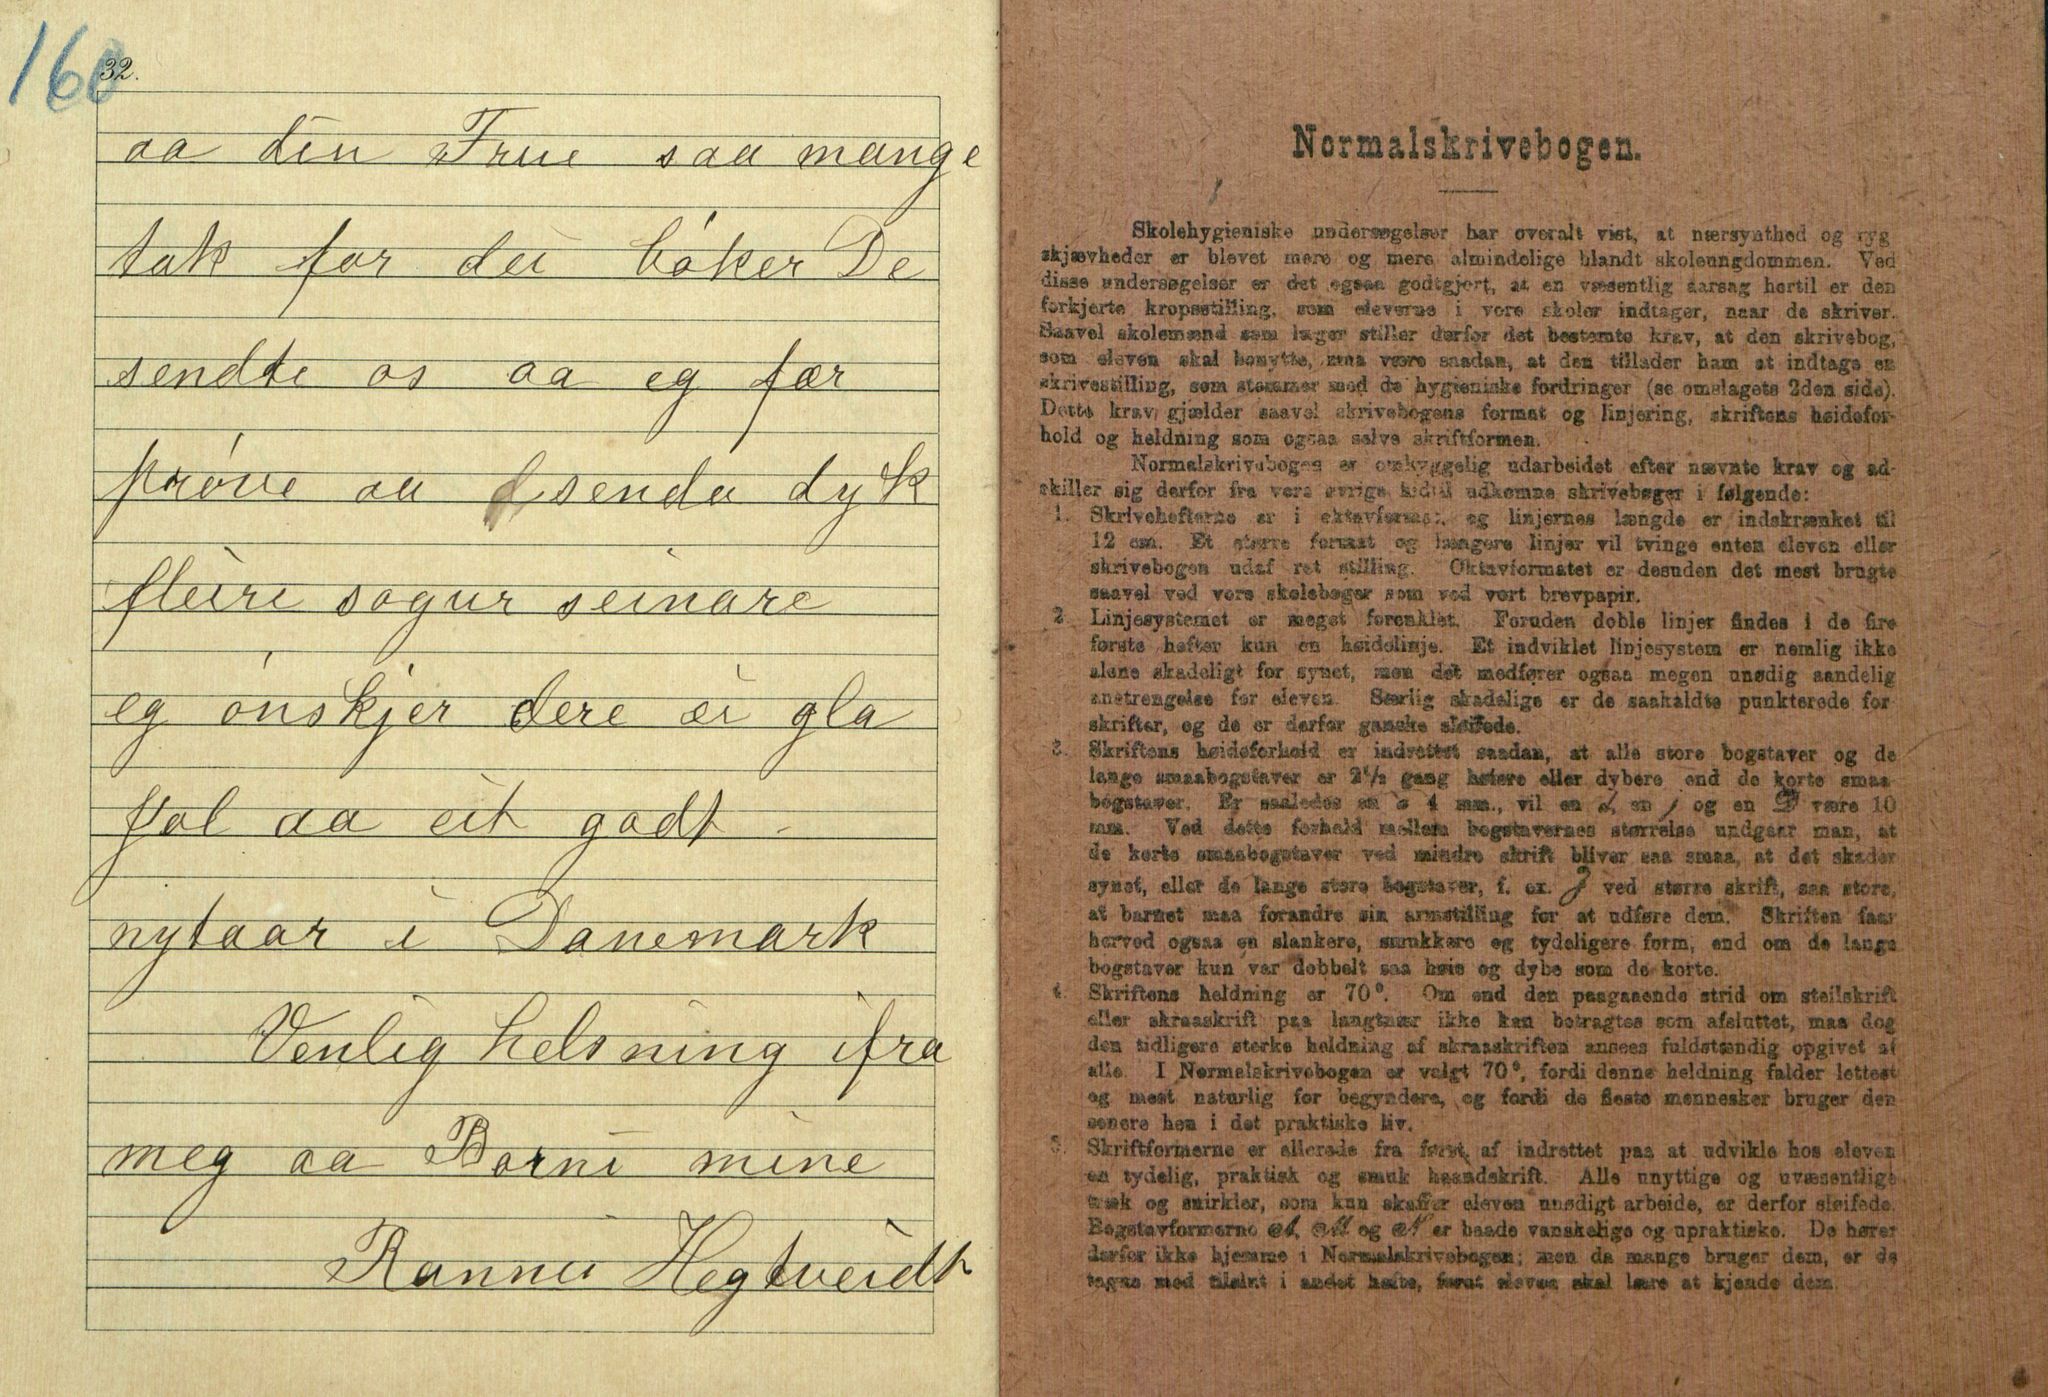 160
32.
aa din Frue saa mange
tak for dei bóker De
sendte os aa eg fær
próve aa senda dyk
fleire sogur seinare
eg ónskjer dere ei gla
jol aa eit godt
nytaar i Danemark
Venlig helsning ifra
meg aa Borni mine
Rannei Hegtveidt
Normalskrivebogen.
Skolehygieniske undersøgelser har overalt vist, at nærsynthed og ryg
skjævheder er blevet mere og mere almindelige blandt skoleungdommen. Ved
disse undersøgelser er det ogsaa godtgjort, at en væsentlig aarsag hertil er den
forkjerte kropsstilling, som eleverne i vore skoler indtager, naar de skriver.
Saavel skolemænd som læger stiller derfor det bestemte krav, at den skrivebog,
som eleven skal benytte, maa være saadan, at den tillader ham at indtage en
skrivestilling, som stemmer med de hygieniske fordringer (se omslagets 2den side).
Dette krav gjælder saavel skrivebogens format og linjering, skriftens høidefor-
hold og heldning som ogsaa selve skriftformen.
Normalskrivebogen er omhyggelig udarbeidet efter nævnte krav og ad-
skiller sig derfor fra vore øvrige hidtil udkomne skrivebøger i følgende:
1. Skrivehefterne er i oktavformat, og linjernes længde er indskrænket til
12 cm. Et større format og længere linjer vil tvinge enten eleven eller
skrivebogen udaf ret stilling. Oktavformatet er desuden det mest brugte
saavel ved vore skolebøger som ved vort brevpapir.
2. Linjesystemet er meget forenklet. Foruden doble linjer findes i de fire
første hefter kun en høidelinje. Et indviklet linjesystem er nemlig ikke
alene skadeligt for synet, men det medfører ogsaa megen unødig aandelig
anstrengelse for eleven. Særlig skadelige er de saakaldte punkterede for
skrifter, og de er derfor ganske sløifede.
3. Skriftens høideforhold er indrettet saadan, at alle store bogstaver og de
lange smaabogstaver er 2½ gang høiere eller dybere end de korte smaa-
bogstaver. Er saaledes en s 4 mm., vil en l, en j og en D være 10
mm. Ved dette forhold mellem bogstavernes størrelse undgaar man, at
de korte smaabogstaver ved mindre skrift bliver saa smaa, at det skader
synet, eller de lange store bogstaver, f. ex. J ved større skrift, saa store,
at barnet maa forandre sin armstilling for at udføre dem. Skriften faar
herved ogsaa en slankere, smukkere og tydeligere form, end om de lange
bogstaver kun var dobbelt saa høie og dybe som de korte.
4. Skriftens heldning er 70°. Om end den paagaaende strid om steilskrift
eller skraaskrift paa langtnær ikke kan betragtes som afsluttet, maa dog
den tidligere sterke heldning af skraaskriften ansees fuldstændig opgivet af
alle. I Normalskrivebogen er valgt 70°, fordi denne heldning falder lettest
og mest naturlig for begyndere, og fordi de fleste mennesker bruger den
senere hen i det praktiske liv.
5. Skriftformerne er allerede fra først af indrettet paa at udvikle hos eleven
en tydelig, praktisk og smuk haandskrift. Alle unyttige og uvæsentlige
træk og snirkler, som kun skaffer eleven unødigt arbeide, er derfor sløifede.
Bogstavformerne A, M og N er baade vanskelige og upraktiske. De hører
derfor ikke hjemme i Normalskrivebogen; men da mange bruger dem, er de
tagne med tilsist i andet hefte, forat eleven skal lære at kjende dem.